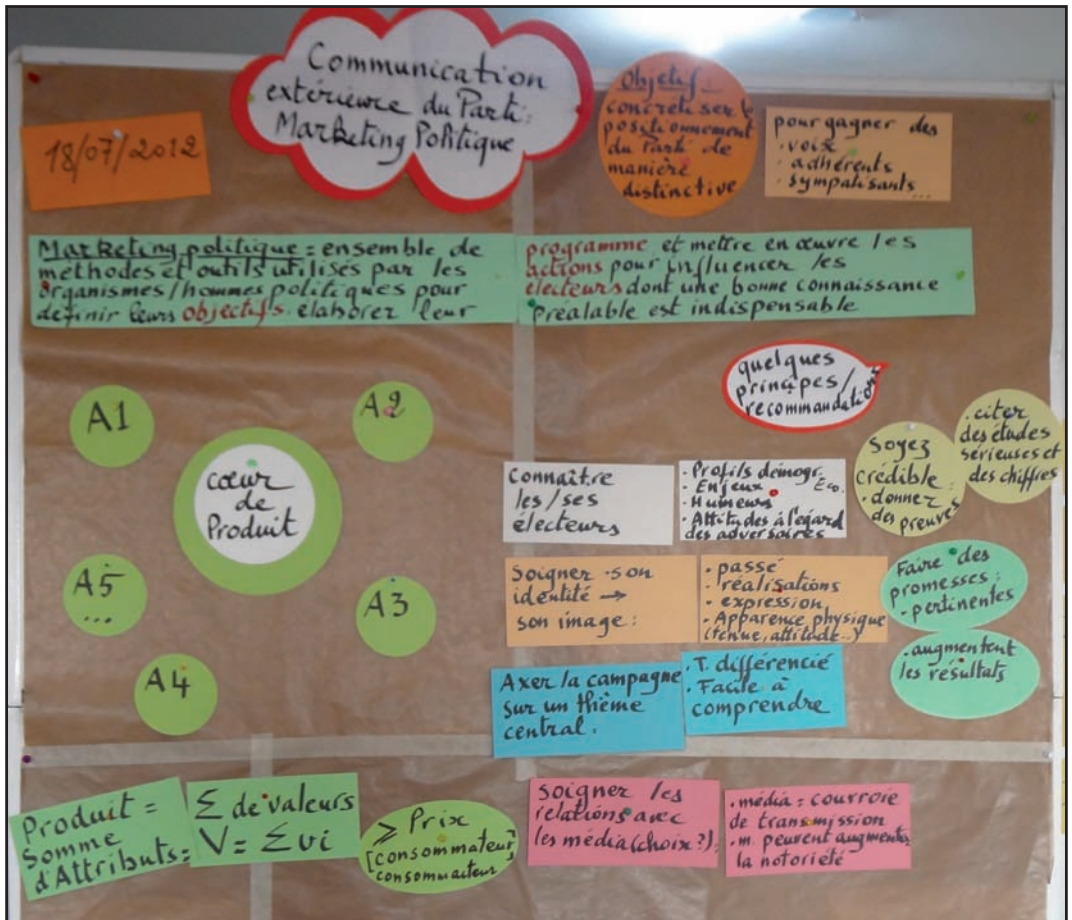 Communication
extérieure du Parti:
Marketing Politique
18/07/2012
Objetif:
concrétiser le
positionnement
du Parti de
manière
distinctive
pour gagner des
· voix
· adhérents
· sympatisants...
Marketing politique = ensemble de
méthodes et outils utilisés par les
organismes/hommes politiques pour
definir leurs objectifs. élaborer leur
programme et mettre en œuvre les
actions pour influencer les
électeurs dont une bonne connaissance
Préalable est indispensable
quelques
principes/
recommandations
A1
A2
cœur
de
Produit
A5
...
A3
A4
Connaître
les/ses
électeurs
· Profils démogr.
· Enjeux Eco.
· Humeurs
· Attitudes à l'égard
des adversaires
Soyez
crédible:
· donner
des preuves
· citer
des études
sérieuses et
des chiffres
Soigner son
identité →
son image:
· passé
· réalisations
· expression
· Apparence physique
(tenue, attitude...)
Faire des
promesses:
· pertinentes
· augmentent
les résultats
Axer la campagne
sur un thème
central.
· T. différencié
· Facile à
comprendre
Produit =
Somme
d'Attributs =
Σ de valeurs
V = Σ vi
≥ Prix
[consommateur]
consommacteur
Soigner les
relations avec
les média (choix?):
· média = courroie
de transmission
· m. peuvent augmenter
la notoriété